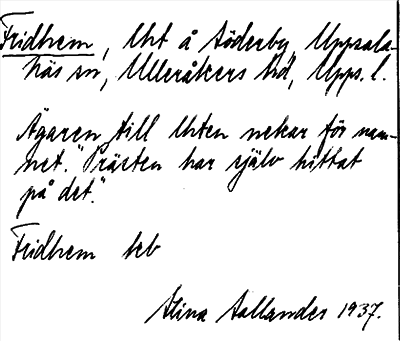 Fridhem, lht å Söderby, Uppsala-
näs sn, Ulleråkers hd, Upps. l.
Ägaren till lhten nekar för nam-
net. "Prästen har själv hittat
på det."
Fridhem beb
Stina Sallander 1937.